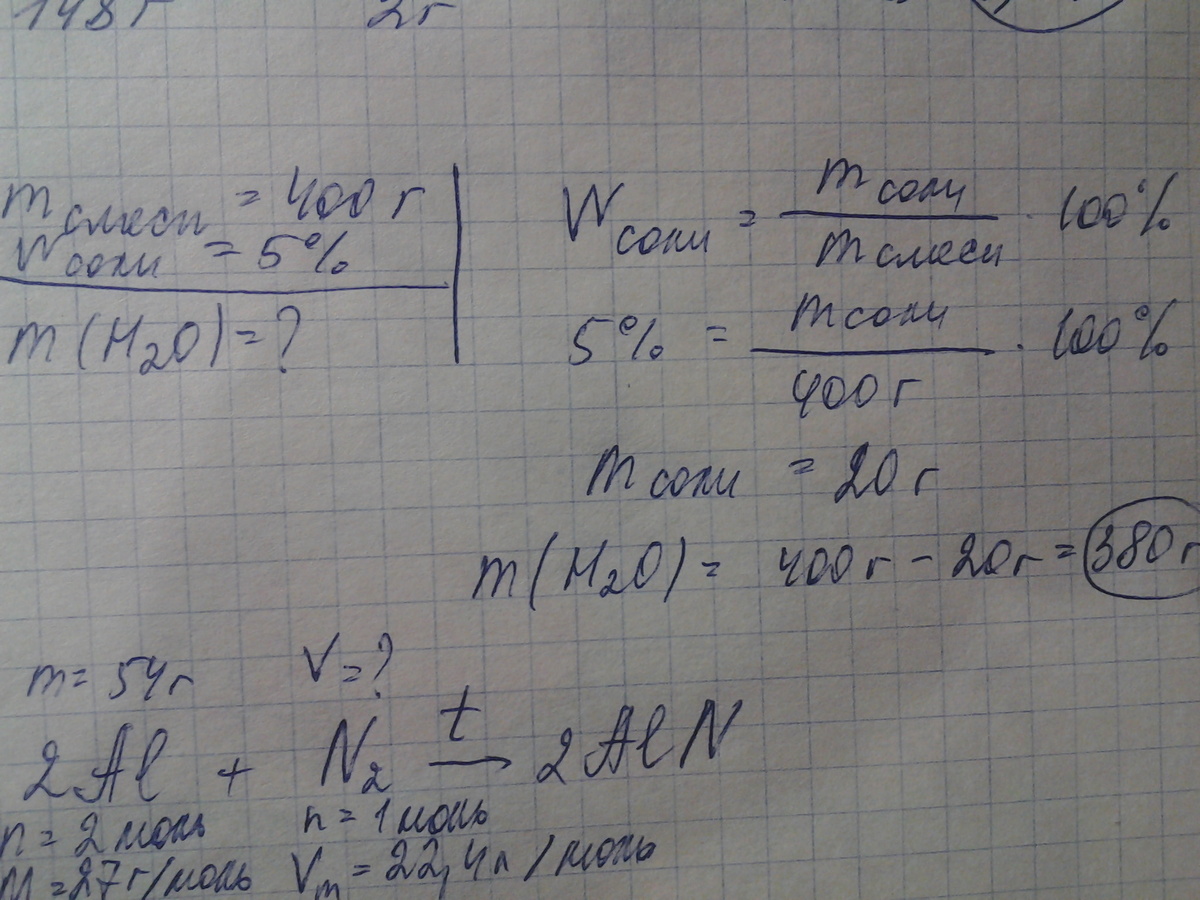 148 г 2г
m смеси = 400 г
W соли = 5%
m (H₂O) = ?
W соли = m соли / m смеси · 100%
5% = m соли / 400 г · 100%
m соли = 20 г
m (H₂O) = 400 г - 20 г = 380 г
m = 54 г V = ?
2Al + N₂ t → 2AlN
n = 2 моль n = 1 моль
M = 27 г/моль Vm = 22,4 л/моль